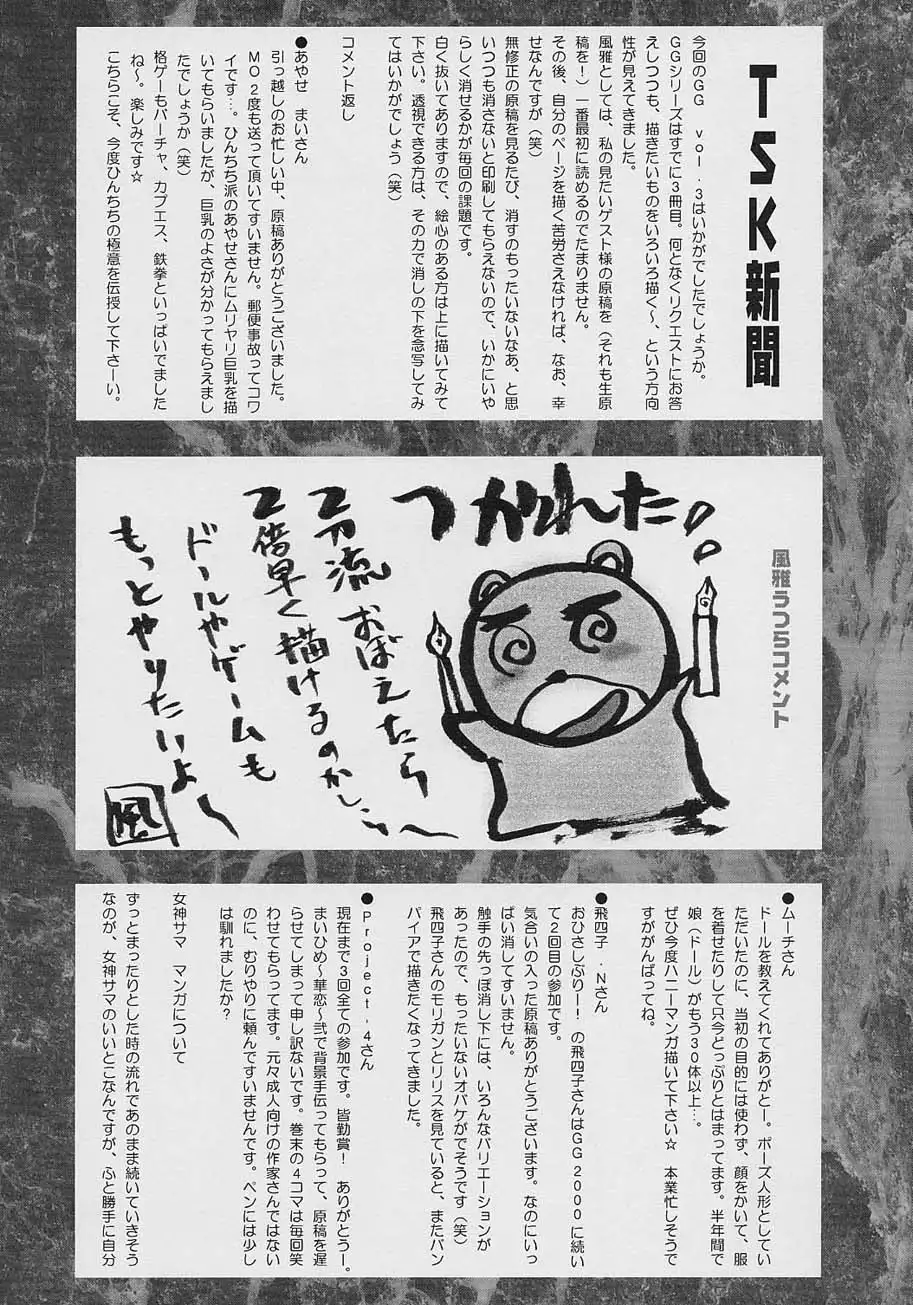 TSK新聞
今回のGG vol.3はいかがでしたでしょうか。
GGシリーズはすでに3冊目。何となくリクエストにお答
えしつつも、描きたいものをいろいろ描く～、という方向
性が見えてきました。
風雅としては、私の見たいゲスト様の原稿を(それも生原
稿を!)一番最初に読めるのでたまりません。
その後、自分のページを描く苦労さえなければ、なお、幸
せなんですが(笑)
無修正の原稿を見るたび、消すのもったいないなあ、と思
いつつも消さないと印刷してもらえないので、いかにいや
らしく消せるかが毎回の課題です。
白く抜いてありますので、絵心のある方は上に描いてみて
下さい。透視できる方は、その力で消しの下を念写してみ
てはいかがでしょう(笑)
コメント返し
●あやせ まいさん
引っ越しのお忙しい中、原稿ありがとうございました。
MO2度も送って頂いてすいません。郵便事故ってコワ
イです…。ひんち派のあやせさんにムリヤリ巨乳を描
いてもらいましたが、巨乳のよさが分かってもらえまし
たでしょうか(笑)
格ゲーもバーチャ、カプエス、鉄拳といっぱいでました
ね～。楽しみです☆
こちらこそ、今度ひんちちの極意を伝授して下さーい。
風雅うつらコメント
つかれた。。
2刀流おぼえたら
2倍早く描けるのかしら～
ドールやゲームも
もっとやりたいよ～
風
●ムーチさん
ドールを教えてくれてありがとー。ポーズ人形としてい
ただいたのに、当初の目的には使わず、顔をかいて、服
を着せたりして只今どっぷりとはまってます。半年間で
娘(ドール)がもう30体以上…。
ぜひ今度ハニーマンガ描いて下さい☆ 本業忙しそうで
すががんばってね。
●飛四子・Nさん
おひさしぶりー!の飛四子さんはGG2000に続い
て2回目の参加です。
気合いの入った原稿ありがとうございます。なのにいっ
ぱい消してすいません。
触手の先っぽ消し下には、いろんなバリエーションが
あったので、もったいないオバケがでそうです(笑)
飛四子さんのモリガンとリリスを見ていると、またバン
パイアで描きたくなってきました。
●Project.4さん
現在まで3回全ての参加です。皆勤賞!ありがとうー。
まいひめ～華恋～弐で背景手伝ってもらって、原稿を遅
らせてしまって申し訳ないです。巻末の4コマは毎回笑
わせてもらってます。元々成人向けの作家さんではない
のに、むりやりに頼んですいませんです。ペンには少し
は馴れましたか?
女神サマ マンガについて
ずっとまったりとした時の流れであのまま続いていきそう
なのが、女神サマのいいとこなんですが、ふと勝手に自分